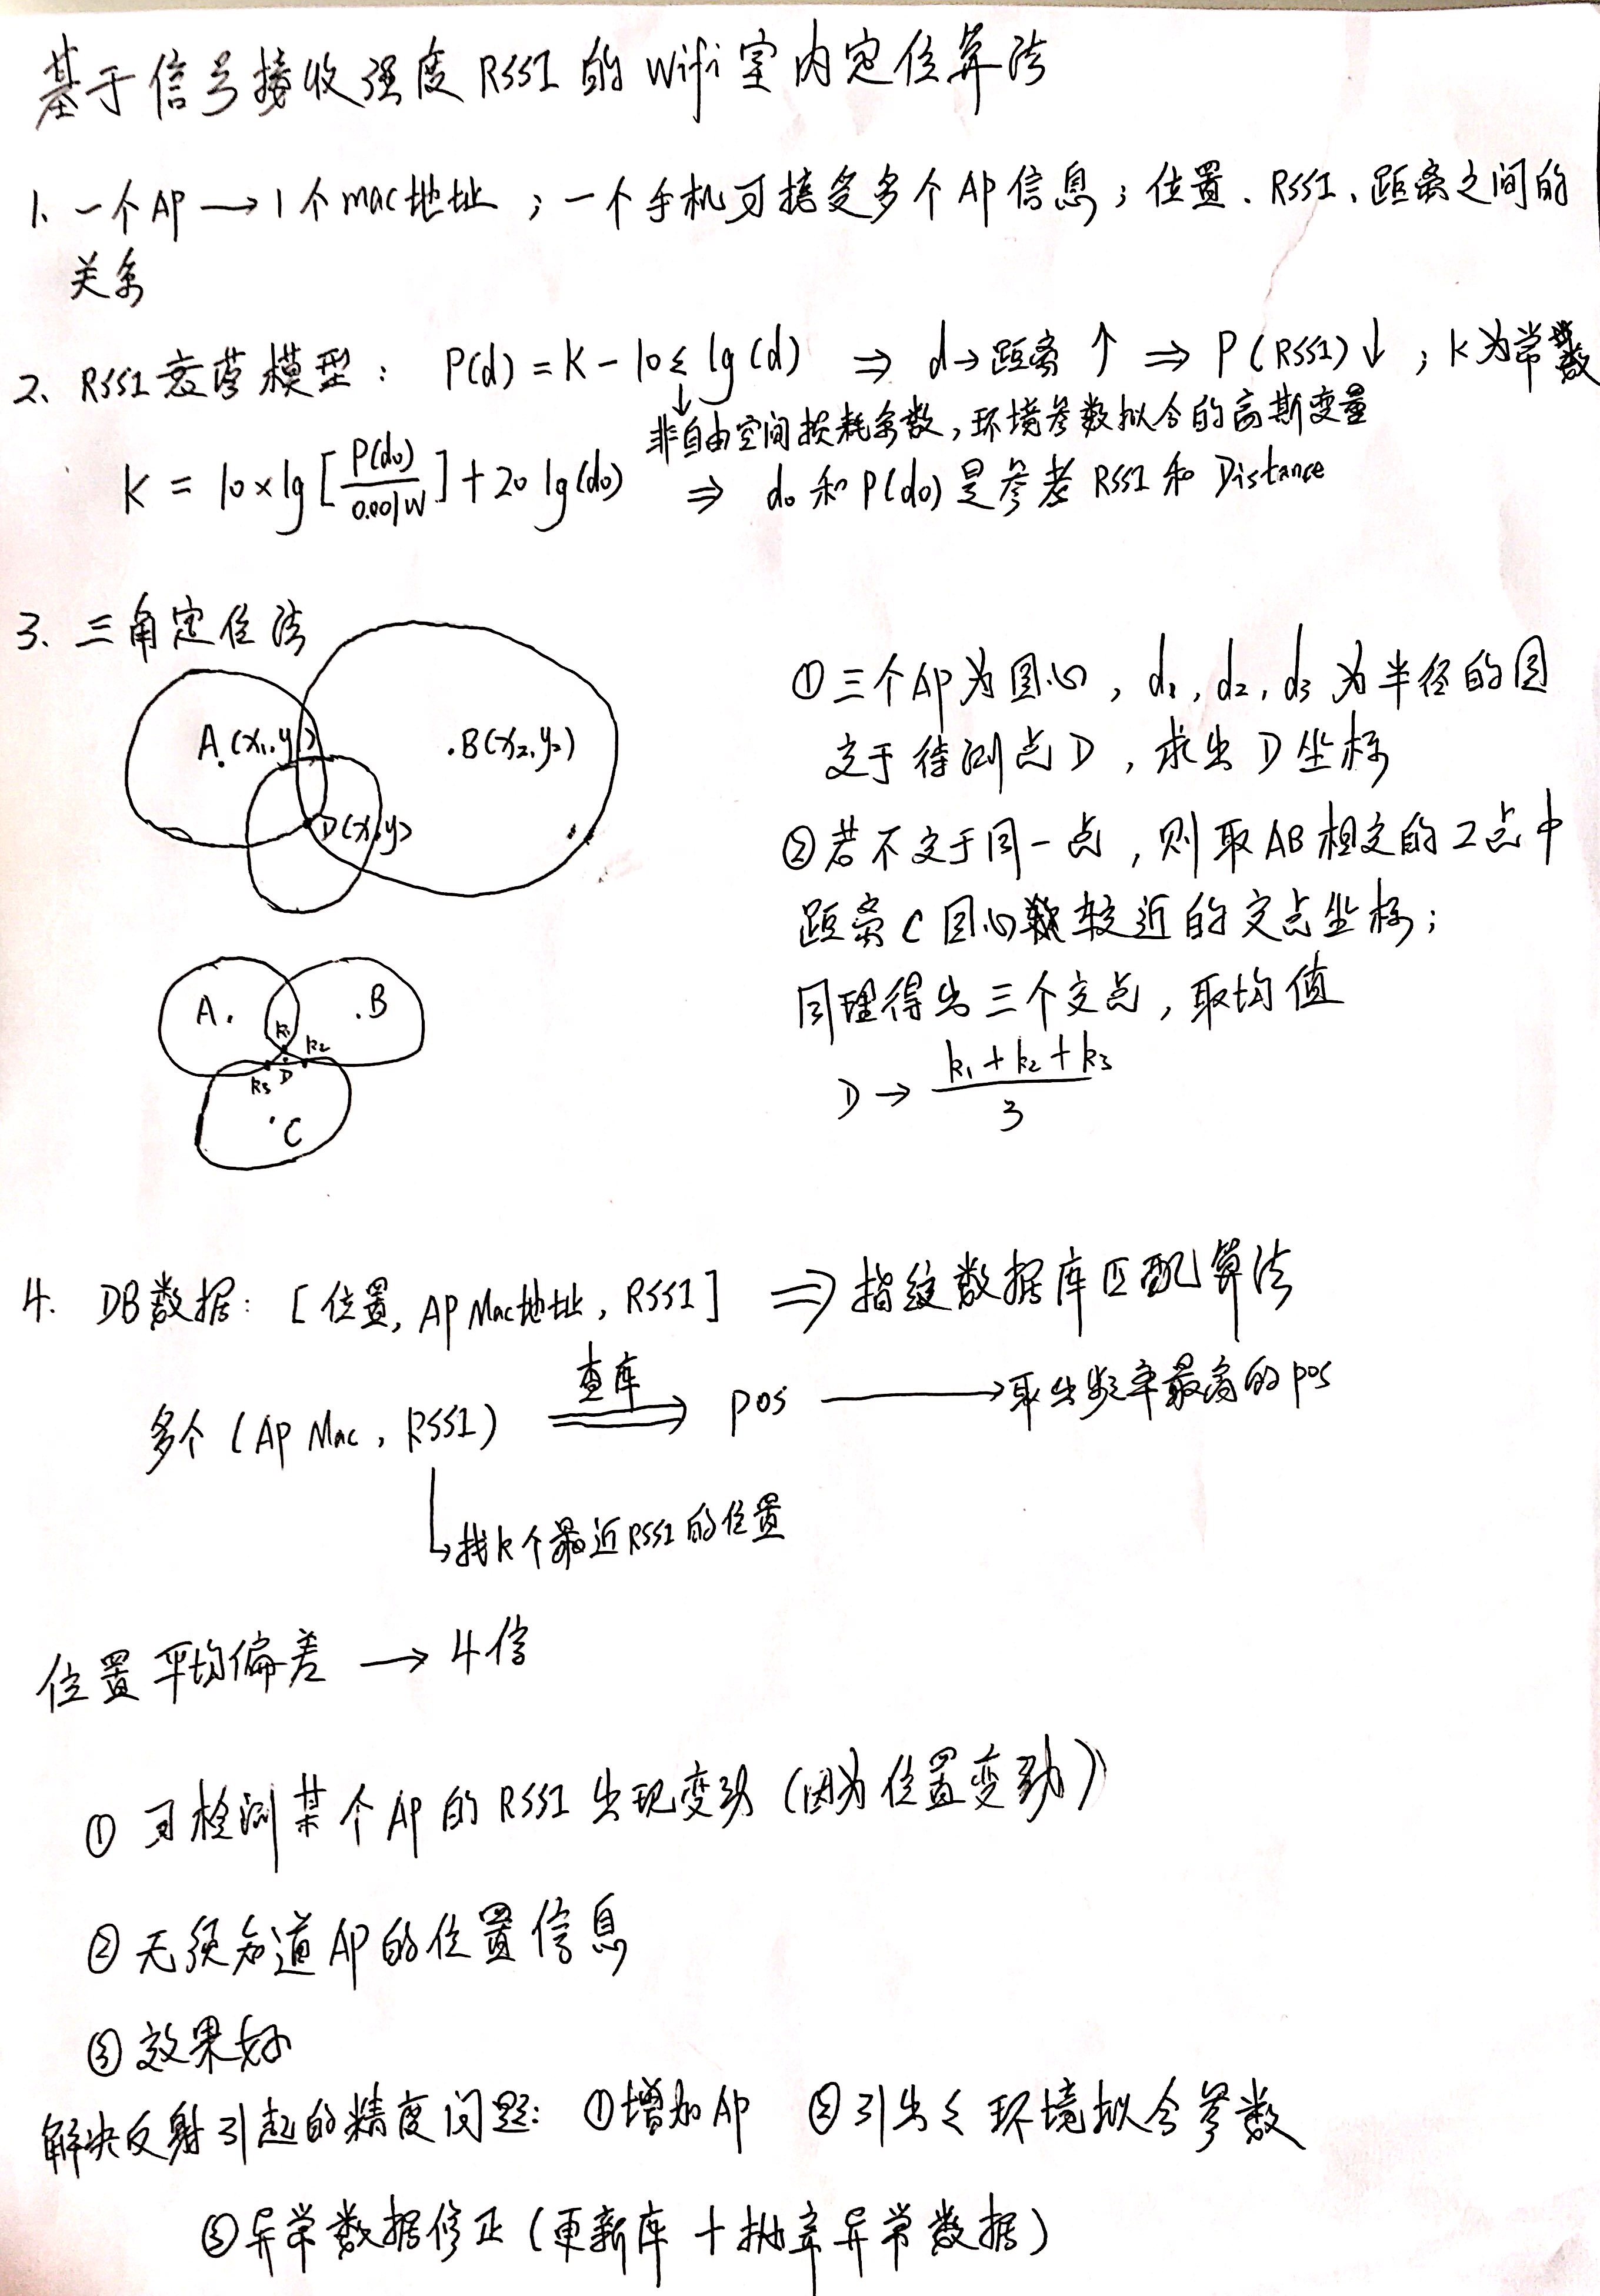 基于信号接收强度RSSI的Wifi室内定位算法
1、一个AP → 1个mac地址；一个手机可接受多个AP信息；位置、RSSI、距离之间的
关系
2、RSSI衰落模型： P(d) = K - 10ξ lg(d) ⇒ d→距离↑ ⇒ P(RSSI)↓；K为常数
↓
非自由空间损耗系数，环境参数拟合的高斯变量
K = 10×lg[P(d0)/0.001W] + 20 lg(d0) ⇒ d0和P(d0)是参考RSSI和Distance
3、三角定位法
A(x1,y1)
.B(x2,y2)
D(x,y)
①三个AP为圆心，d1, d2, d3为半径的圆
交于待测点D，求出D坐标
②若不交于同一点，则取AB相交的2点中
距离C圆心较近的交点坐标；
同理得出三个交点，取均值
D → (k1+k2+k3)/3
A.
.B
k1
k2
k3
D
C
4. DB数据：[位置, AP Mac地址, RSSI] ⇒ 指纹数据库匹配算法
多个(AP Mac, RSSI) 查库⇒ pos → 取出频率最高的pos
↳找k个最近RSSI的位置
位置平均偏差 → 4倍
①可检测某个AP的RSSI出现变动(因为位置变动)
②无须知道AP的位置信息
③效果好
解决反射引起的精度问题：①增加AP ②引出ξ环境拟合参数
③异常数据修正(更新库+抛弃异常数据)